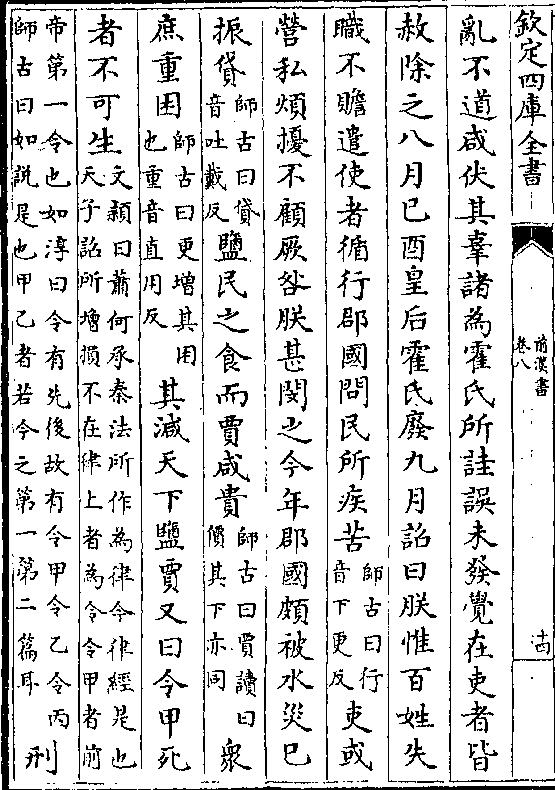 欽定四庫全書
前漢書
卷八
十四
亂不道咸伏其辜諸為霍氏所詿誤未發覺在吏者皆
赦除之八月己酉皇后霍氏廢九月詔曰朕惟百姓失
職不贍遣使者循行郡國問民所疾苦師古曰行
音下更反吏或
營私煩擾不顧厥咎朕甚閔之今年郡國頗被水災已
振貸師古曰貸
音吐戴反鹽民之食而賈咸貴師古曰賈讀曰
價其下亦同衆
庶重困師古曰更增其困
也重音直用反其減天下鹽賈又曰令甲死
者不可生文穎曰蕭何承秦法所作為律令律經是也
天子詔所增損不在律上者為令令甲者前
帝第一令也如淳曰令有先後故有令甲令乙令丙
師古曰如說是也甲乙者若今之第一第二篇耳刑